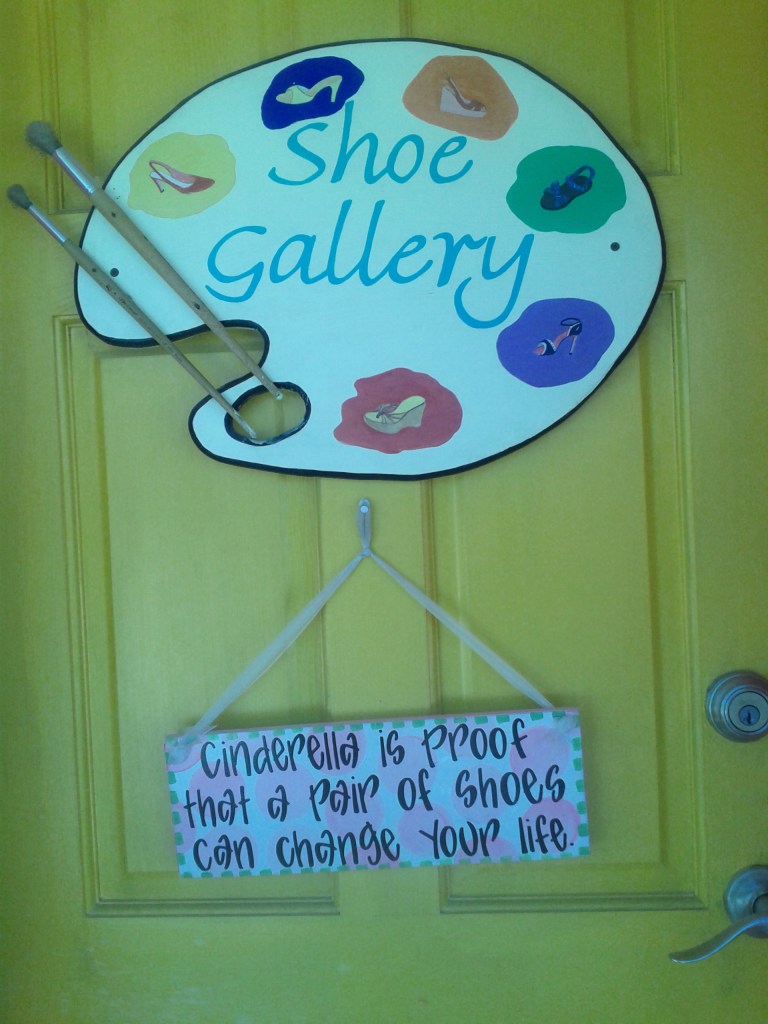 Shoe
Gallery
Cinderella is proof
that a pair of shoes
can change your life.